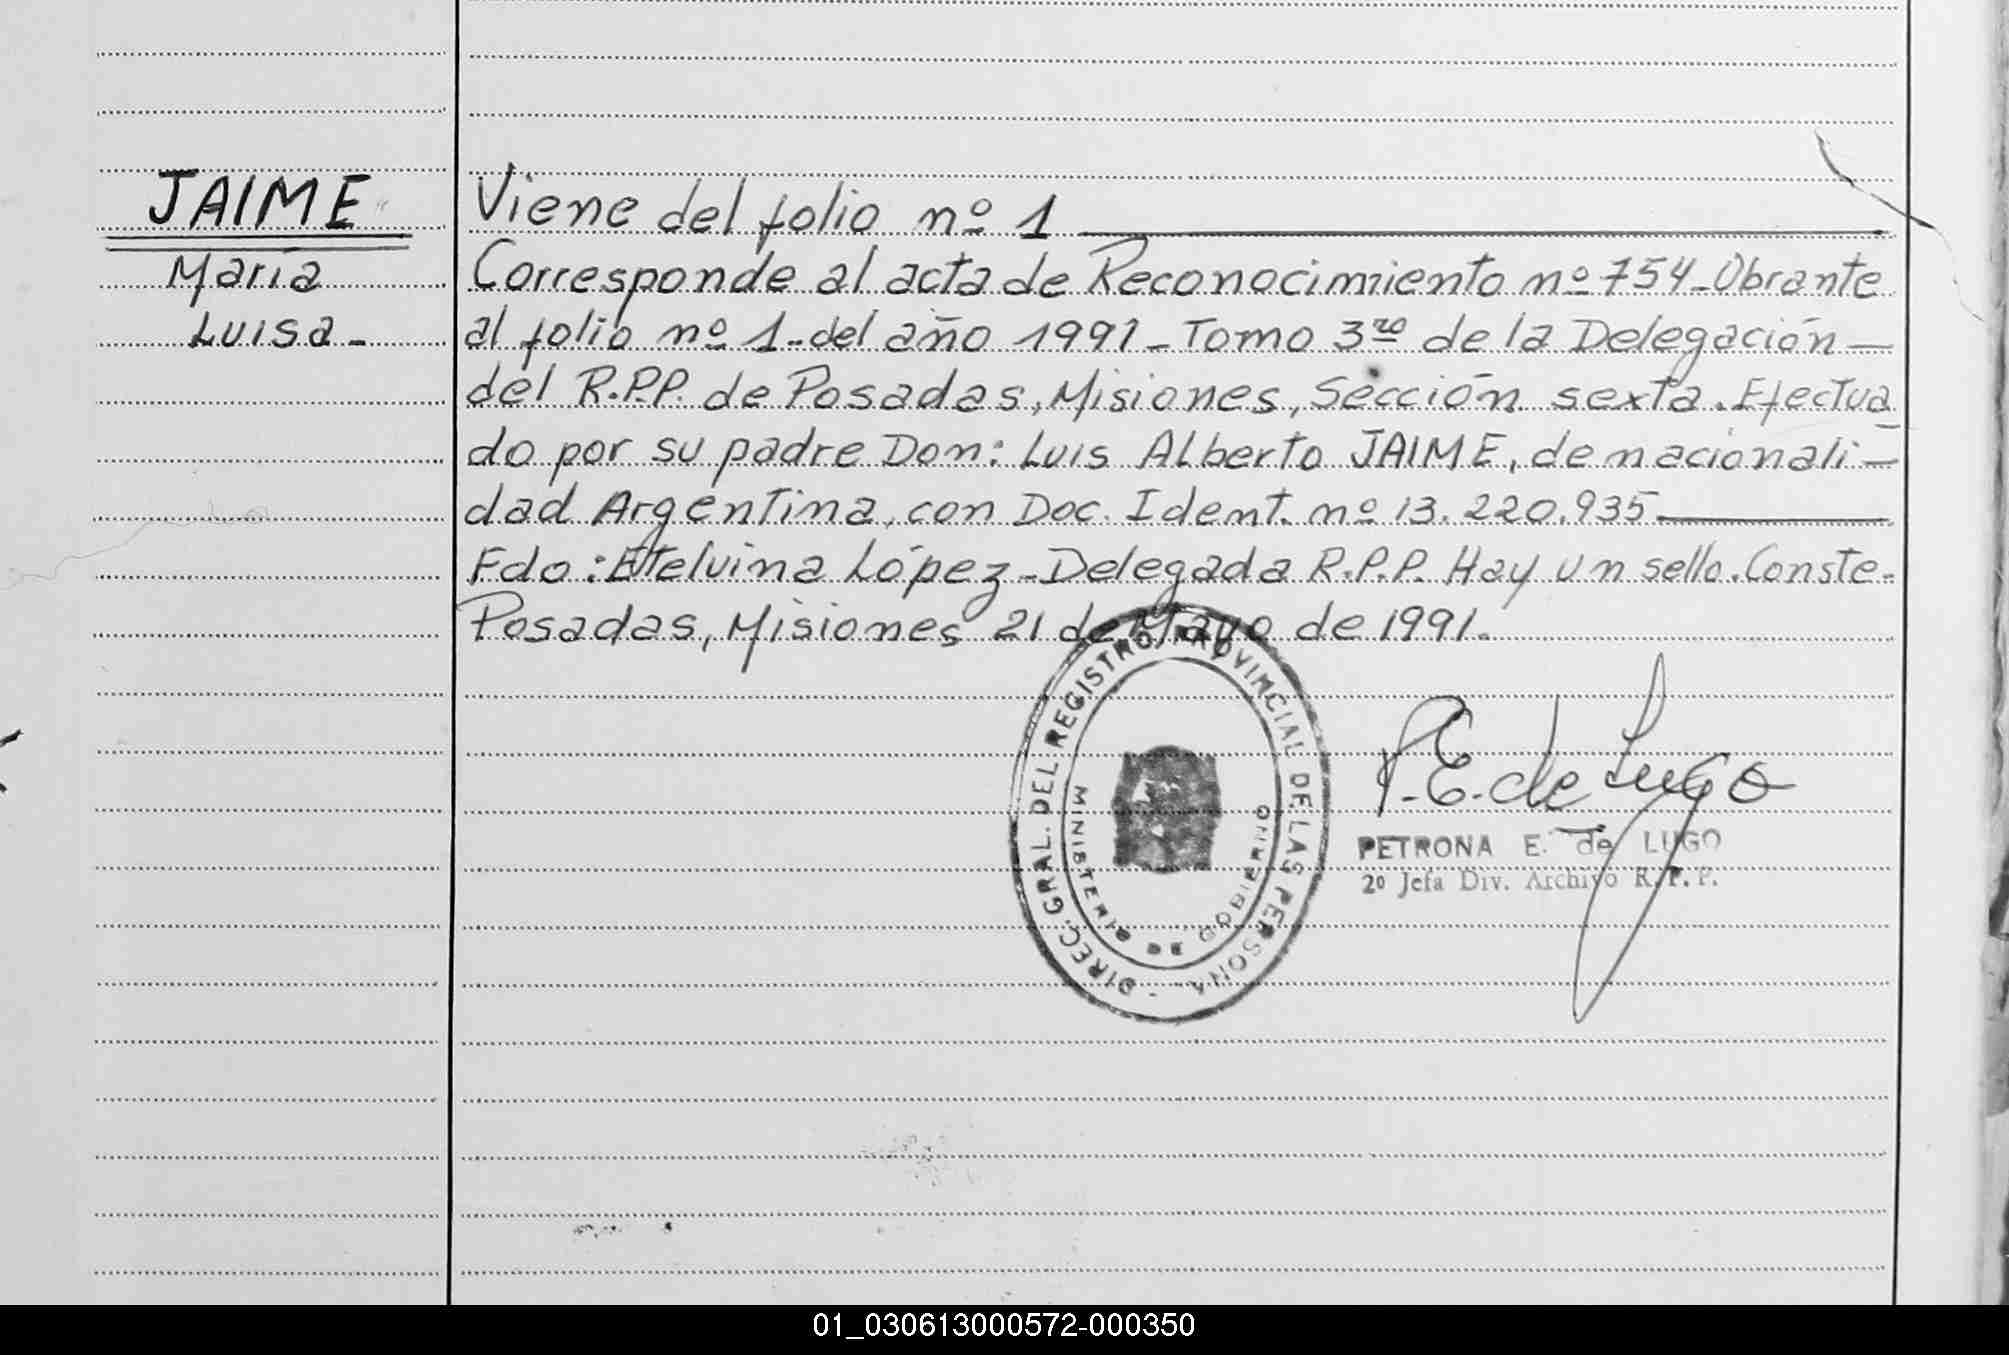 JAIME
María
Luisa-
Viene del folio nº 1
Corresponde al acta de Reconocimiento nº 754-Obrante
al folio nº 1-del año 1991-Tomo 3ro de la Delegación-
del R.P.P. de Posadas, Misiones, Sección sexta. Efectua
do por su padre Don: Luis Alberto JAIME, de nacionali-
dad Argentina, con Doc. Ident. nº 13.220.935
Fdo: Etelvina López-Delegada R.P.P. Hay un sello. Conste-
Posadas, Misiones 21 de Mayo de 1991.
DIREC. GRAL. DEL REGISTRO PROVINCIAL DE LAS PERSONA.
MINISTERIO DE GOBIERNO
P.E. de Lugo
PETRONA E. de LUGO
2º Jefa Div. Archivo R.P.P.
01_030613000572-000350